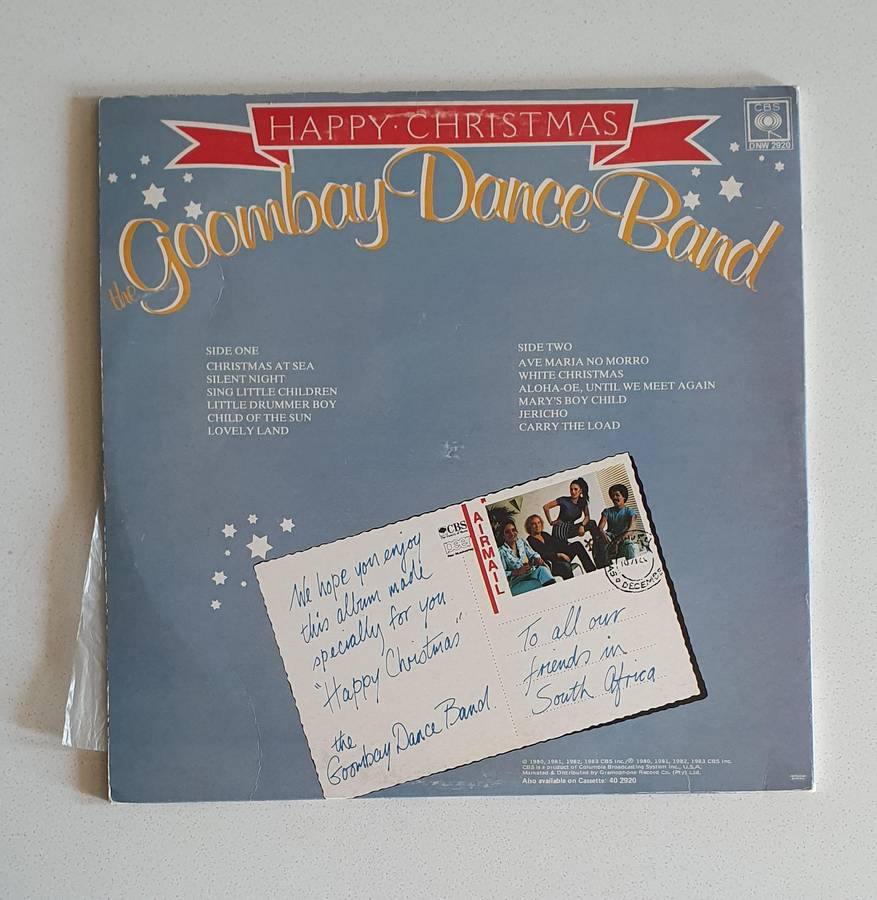 HAPPY·CHRISTMAS
CBS
DNW 2920
the Goombay Dance Band
SIDE ONE
CHRISTMAS AT SEA
SILENT NIGHT
SING LITTLE CHILDREN
LITTLE DRUMMER BOY
CHILD OF THE SUN
LOVELY LAND
SIDE TWO
AVE MARIA NO MORRO
WHITE CHRISTMAS
ALOHA-OE, UNTIL WE MEET AGAIN
MARY'S BOY CHILD
JERICHO
CARRY THE LOAD
We hope you enjoy
this album made
specially for you
"Happy Christmas"
the
Goombay Dance Band
CBS
AIRMAIL
DECEMBE
To all our
friends in
South Africa
© 1980, 1981, 1982, 1983 CBS Inc./℗ 1980, 1981, 1982, 1983 CBS Inc.
CBS is a product of Columbia Broadcasting System Inc., U.S.A.
Marketed & Distributed by Gramophone Record Co. (Pty) Ltd.
Also available on Cassette: 40 2920